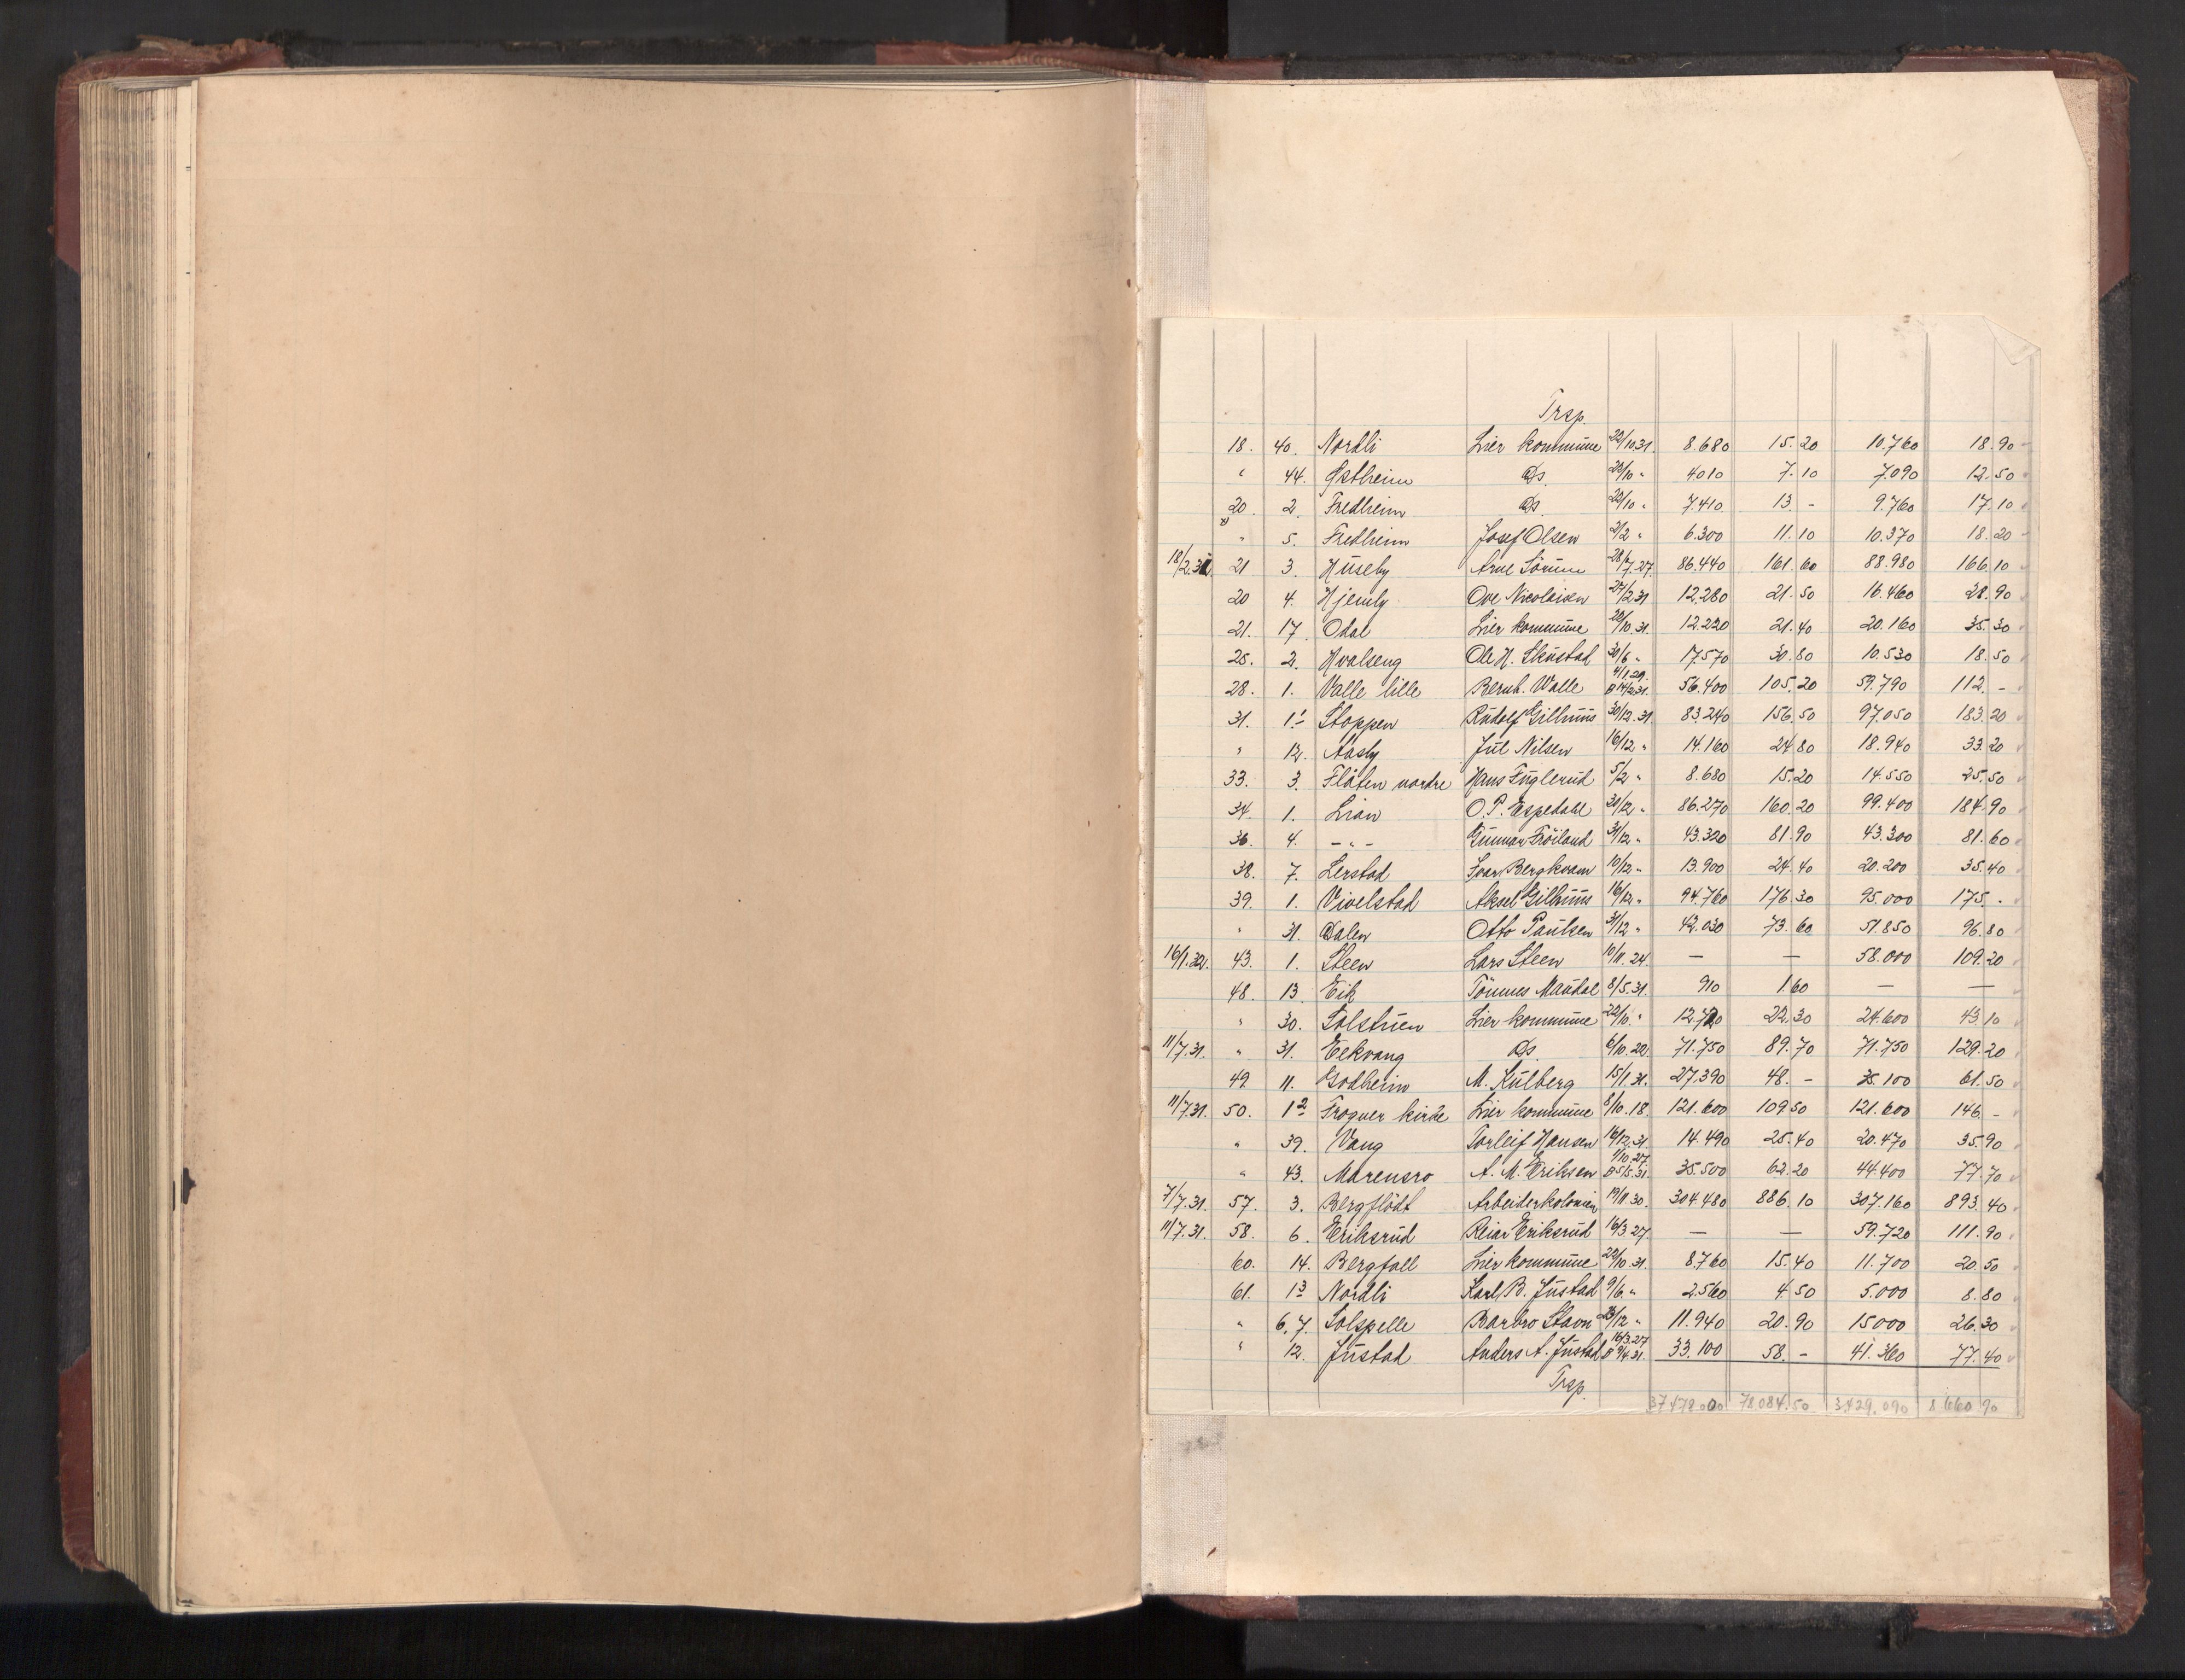 Trsp.
18. 40. Nordli Lier kommune 22/10.31. 8.680 15.20 10.760 18.90
" 44. Østheim Do. 28/10 " 4010 7.10 7.090 12.50
20. 2. Fredheim Do. 22/10 " 7.410 13 - 9.760 17.10
x) " 5. Fredheim Josef Olsen 2/2 " 6.300 11.10 10.370 18.20
18/2.31. 21 3. Huseby Arne Sørum 28/7.27. 86.440 161.60 88.980 166.10
20 4. Hjemly Ove Nicolaisen 27/2.31 12.280 21.50 16.460 28.90
21. 17. Odal Lier kommune 20/10.31. 12.220 21.40 20.160 35.30
25. 2. Hvalseng Ole H. Skustad 30/6 " 17.570 30.80 10.530 18.50
28. 1. Valle lille Bernh. Walle 4/1.29. 14/2.31. 56.400 105.20 59.790 112. -
31. 1¹ Stoppen Rudolf Gilhuus 30/12.31. 83.240 156.50 97.050 183.20
" 12. Aasly Jul Nilsen 16/12 " 14.160 24.80 18.940 33.20
33. 3. Flåten nordre Hans Fuglerud 5/2 " 8.680 15.20 14.550 25.50
34. 1. Lian O. P. Espedahl 30/12 " 86.270 160.20 99.400 184.90
36. 4. - " - Gunnar Fröiland 31/12 " 43.320 81.90 43.300 81.60
38. 7. Lerstad Ivar Bergkvam 10/12 " 13.900 24.40 20.200 35.40
39. 1. Vivelstad Aksel Gilhuus 16/12 " 94.760 176.30 95.000 175. -
" 31. Dalen Otto Paulsen 31/12 " 42.030 73.60 51.850 96.80
16/1.32. 43. 1. Steen Lars Steen 10/11.24. — — 58.000 109.20
48. 13 Eik Tönnes Maudal 8/5.31. 910 1.60 — —
" 30. Solstuen Lier kommune 22/10. " 12.720 22.30 24.600 43.10
11/7.31. " 31. Eekvang Do. 6/10.22. 71.750 89.70 71.750 129.20
49. 11. Godheim M. Kulberg 15/1.31. 27.390 48. - 35.100 61.50
11/7.31. 50. 1² Frogner kirke Lier kommune 8/10.18. 121.600 109.50 121.600 146. -
" 39. Vang Torleif Hansen 16/12.31. 14.490 25.40 20.470 35.90
" 43. Marensro A. M. Eriksen 1/10.27. 5/5.31. 35.500 62.20 44.400 77.70
7/7.31. 57. 3. Bergflödt Arbeiderkolonien 19/11.30. 304.480 886.10 307.160 893.40
11/7.31. 58. 6. Eriksrud Reiar Eriksrud 16/3.27. — — 59.720 111.90
60. 14. Bergfall Lier kommune 22/10.31. 8.760 15.40 11.700 20.50
61. 1³ Nordli Karl B. Justad 9/6 " 2.560 4.50 5.000 8.80
" 6,7. Solspelle Barbro Stavn 28/12 " 11.940 20.90 15000 26.30
" 12. Justad Anders A. Justad 16/3.27. 9/4.31. 33.100 58. - 41.360 77.40
Trsp.
78084.50 3429.090 8660.90